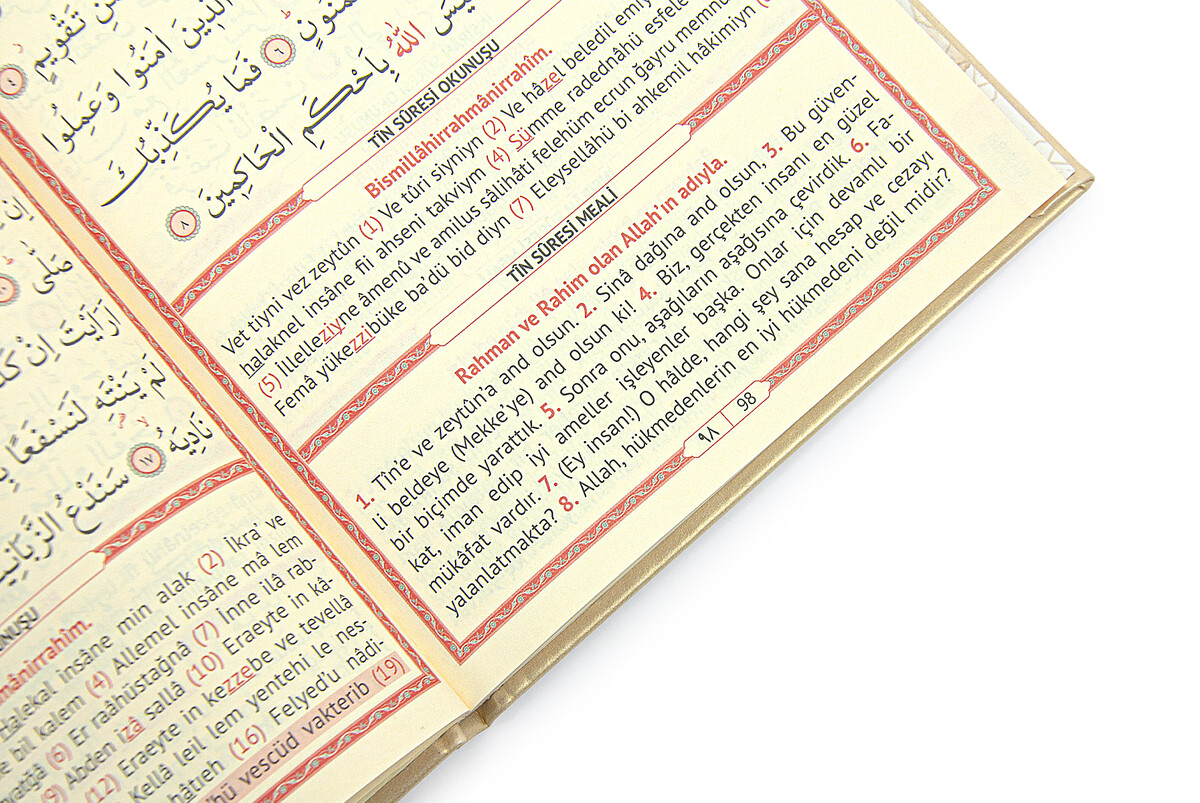 تَقْوِيمٍ
الَّذِينَ اٰمَنُوا وَعَمِلُوا
٦ فَمَا يُكَذِّبُكَ
اللّٰهُ بِاَحْكَمِ الْحَاكِمِينَ ٨
TÎN SÛRESİ OKUNUŞU
Bismillâhirrahmânirrahîm.
Vet tiyni vez zeytûn (1) Ve tûri siyniyn (2) Ve hâzel beledil
halaknel insâne fii ahseni takviym (4) Sümme radednâhü esfele
(5) Illelleziyne âmenû ve amilus sâlihâti felehüm ecrun ğayru
Femâ yükezzibüke ba'dü bid diyn (7) Eleysellâhü bi ahkemil hâkimiyn
TÎN SÛRESİ MEALİ
Rahman ve Rahim olan Allah'ın adıyla.
1. Tîn'e ve zeytûn'a and olsun. 2. Sinâ dağına and olsun, 3. Bu güven-
li beldeye (Mekke'ye) and olsun ki! 4. Biz, gerçekten insanı en güzel
bir biçimde yarattık. 5. Sonra onu, aşağıların aşağısına çevirdik. 6. Fa-
kat, iman edip iyi ameller işleyenler başka. Onlar için devamlı bir
mükâfat vardır. 7. (Ey insan!) O hâlde, hangi şey sana hesap ve cezayı
yalanlatmakta? 8. Allah, hükmedenlerin en iyi hükmedeni değil midir?
٩٨ 98
صَلّٰى
اَرَاَيْتَ اِنْ
لَمْ يَنْتَهِ لَنَسْفَعًا
نَادِيَهُ ١٧ سَنَدْعُ
insâne min alak (2) İkra' ve
bil kalem (4) Allemel insâne mâ lem
(6) Er raâhüstağnâ (7) İnne ilâ rab-
(9) Abden izâ sallâ (10) Eraeyte in kâ-
(12) Eraeyte in kezzebe ve tevellâ
Kellâ leil lem yentehi le nes-
hâtıeh (16) Felyed'u nâdi-
vescüd vakterib (19)